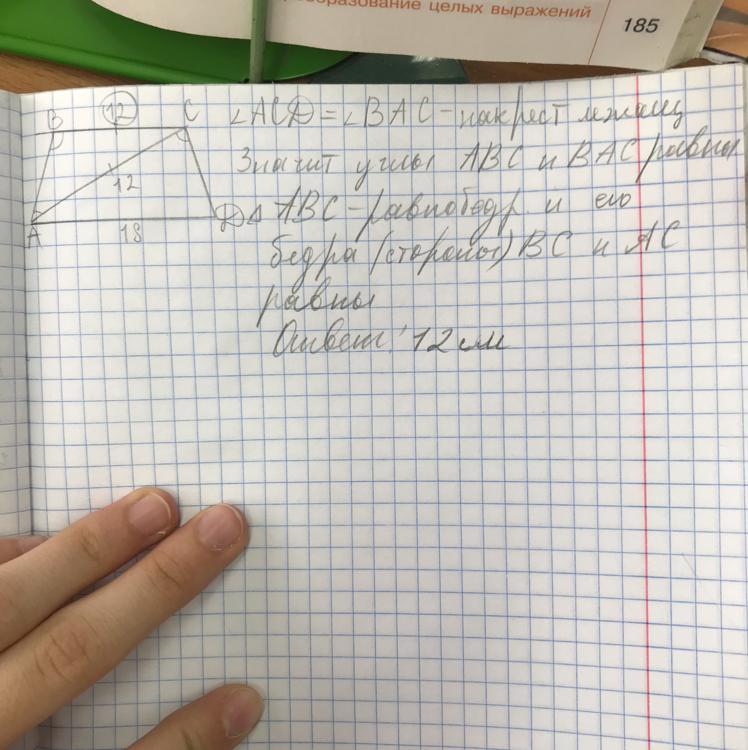 образование целых выражений
185
B 12 C
12
A 18 D
∠ACD = ∠BAC - накрест лежащ
Значит углы ABC и BAC равны
△ABC - равнобедр. и его
бедра (стороны) BC и AC
равны
Ответ: 12 см